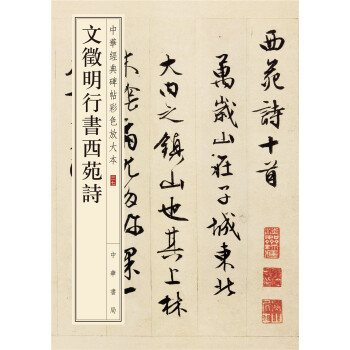 西苑詩十首
萬歲山在子城東北
大內之鎮山也其上林
中華經典碑帖彩色放大本
文徵明行書西苑詩
中華書局